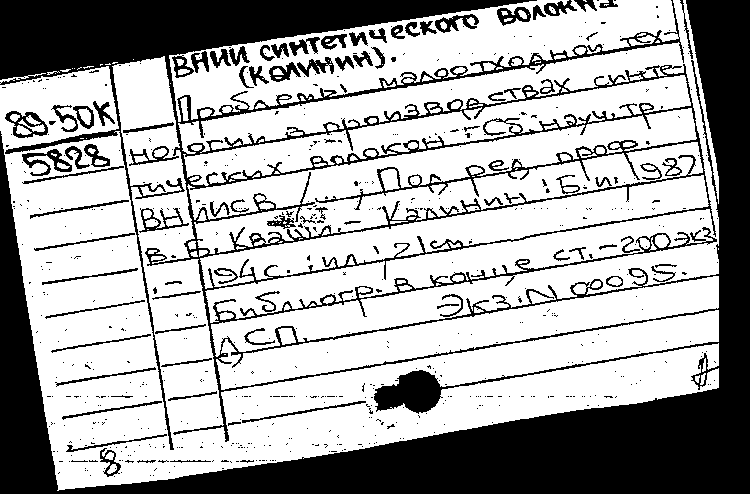 ВНИИ синтетического волокна
(Калинин).
89-50К
5828
Проблемы малоотходной тех-
нологии в производствах синте-
тических волокон : Сб. науч. тр.
ВНИИСВ / ... ; Под ред. проф.
В. Б. Кваши. - Калинин : Б. и., 1987
. - 194 с. : ил. ; 21 см.
Библиогр. в конце ст. - 200 экз
ДСП. Экз. N 00095.
8